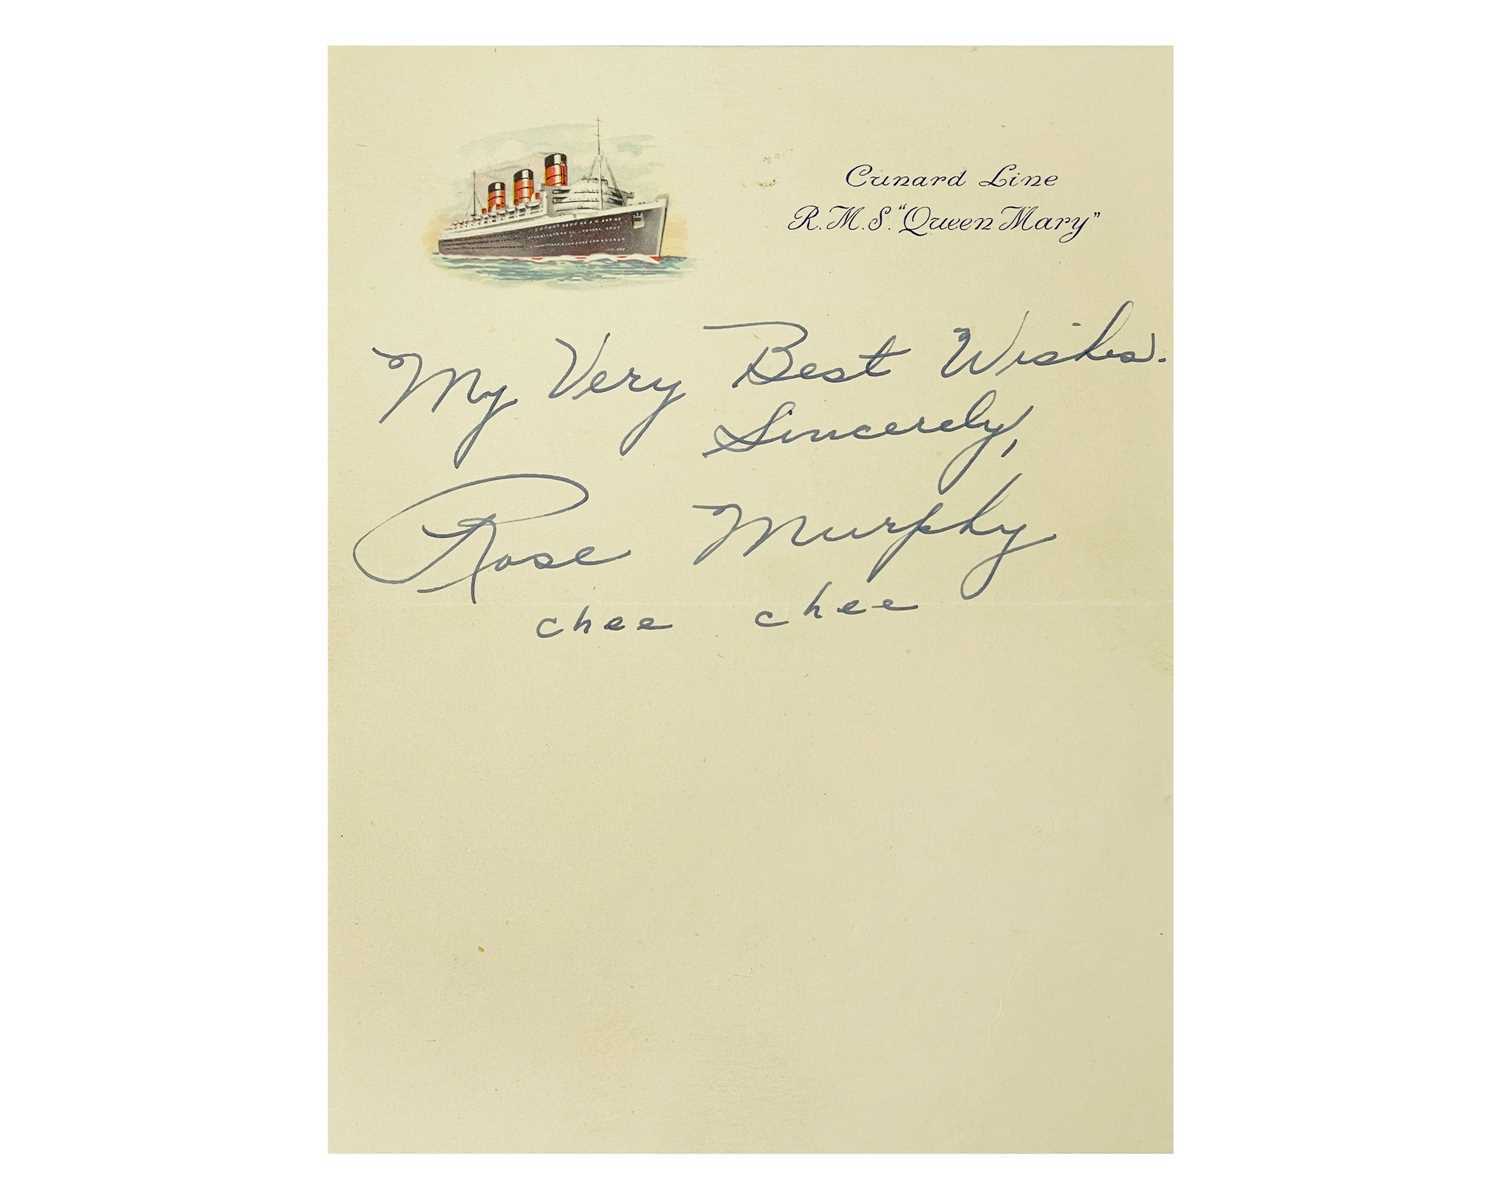 Cunard Line
R.M.S. "Queen Mary"
My Very Best Wishes.
Sincerely,
Rose Murphy
chee chee